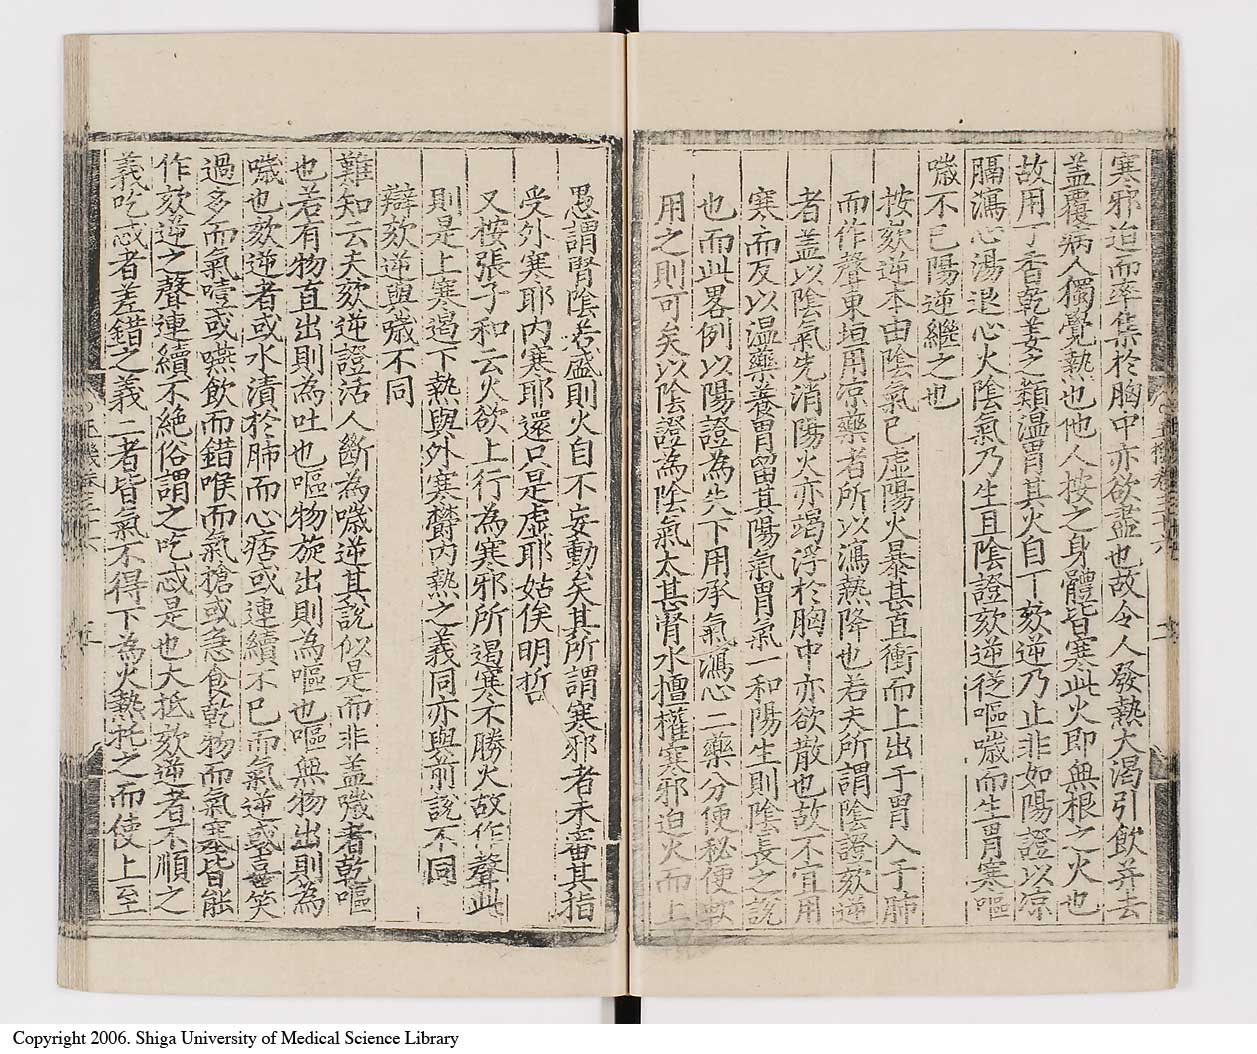 寒邪迫而率集於胸中亦欲盡也故令人發熱大渴引飲并去
盖覆病人獨覺熱也他人按之身體皆寒此火即無根之火也
故用丁香乾姜之類温胃其火自下欬逆乃止非如陽證以凉
膈瀉心湯退心火陰氣乃生且陰證欬逆從嘔噦而生胃寒嘔
噦不已陽逆繼之也
按欬逆本由陰氣已虚陽火暴甚直衝而上出于胃入于肺
而作聲東垣用凉藥者所以瀉熱降也若夫所謂陰證欬逆
者盖以陰氣先消陽火亦竭浮於胸中亦欲散也故不宜用
寒而反以温藥養胃留其陽氣胃氣一和陽生則陰長之說
也而此畧例以陽證為先下用承氣瀉心二藥分便秘便軟
用之則可矣以陰證為陰氣太甚腎水擅權寒邪迫火而上
愚謂腎陰若盛則火自不妄動矣其所謂寒邪者未審其指
受外寒耶内寒耶還只是虚耶姑俟明哲
又按張子和云火欲上行為寒邪所遏寒不勝火故作聲此
則是上寒遏下熱與外寒欝内熱之義同亦與前説不同
辯欬逆與噦不同
難知云夫欬逆證活人斷為噦逆其說似是而非盖噦者乾嘔
也若有物直出則為吐也嘔物旋出則為嘔也嘔無物出則為
噦也欬逆者或水漬於肺而心痞或連續不已而氣逆或喜笑
過多而氣噎或嚥飲而錯喉而氣搶或急食乾物而氣塞皆能
作欬逆之聲連續不絶俗謂之吃忒是也大抵欬逆者不順之
義吃忒者差錯之義二者皆氣不得下為火熱托之而使上至
Copyright 2006. Shiga University of Medical Science Library